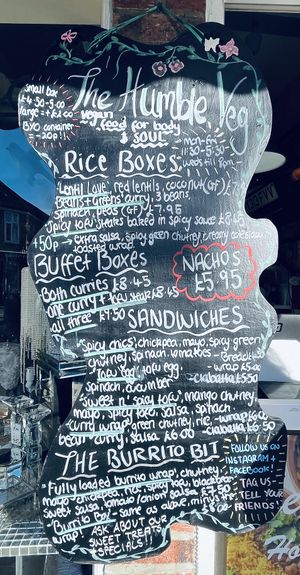 The Humble Veg
vegan
food for body
& SOUL
Small box
£4.50-5.00
large + £1.00
BYO container
-20p!
mon-fri
11:30-5:30
weds till 8pm
Rice Boxes:
'Lentil Love' red lentils, coconut (GF) £7.
Beans + Greens' curry, 3 beans,
Spinach, peas (GF) £7.95
Spicy Tofu' steaks baked in Spicy sauce £8.45
+50p → extra salsa, spicy green chutney, creamy coleslaw
toasted wrap
Buffet Boxes
Both curries £8.45
one curry + tofu steak £8.45
all three £9.50
NACHOS
£5.95
SANDWICHES
Spicy chics', chickpea, mayo, spicy green
chutney, spinach, tomatoes - Bread
'Tofu egg' tofu egg, wrap £5.00
spinach, cucumber ciabatta £5.50
Sweet n' spicy tofu', mango chutney,
mayo, spicy tofu, salsa, spinach
curry wrap' green chutney, rice, wrap £6.00
bean curry, salsa £6.00 ciabatta £6.50
THE BURRITO BIT
'Fully loaded burrito wrap', chutney,
mayo, chickpea, rice, spicy tofu, black bean,
sweet salsa, tomato onion salsa
'Burrito Box' - same as above, minus the
! ASK ABOUT OUR
SWEET TREATS
SPECIALS!!
FOLLOW US ON
INSTAGRAM +
FACEBOOK!
TAG US
TELL YOUR
FRIENDS!